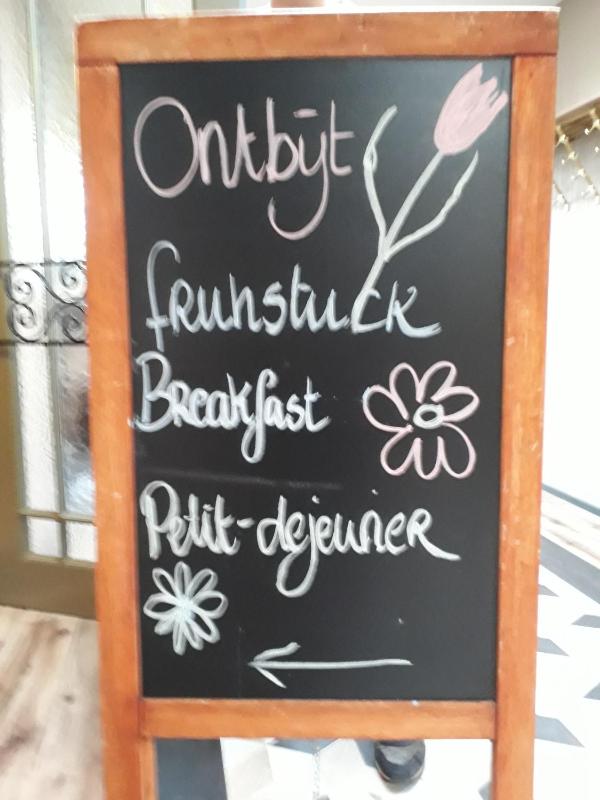 Ontbijt
fruhstuck
Breakfast
Petit-dejeuner